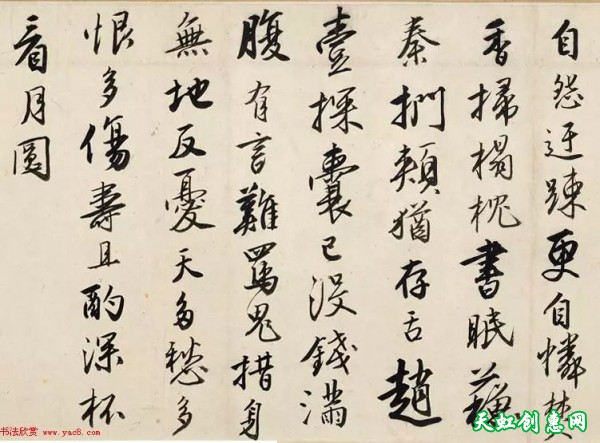 自怨迂踈更自憐焚
香掃榻枕書眠蘇
秦捫頰猶存舌趙
壹探囊已沒錢滿
腹有言難罵鬼措身
無地反憂天多愁多
恨多傷壽且酌深杯
看月圓
书法欣赏 www.yac8.com
天虹创惠网